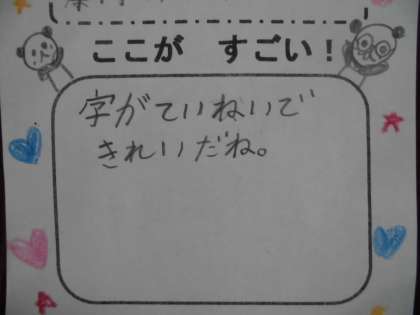 ここが すごい!
字がていねいで
きれいだね。